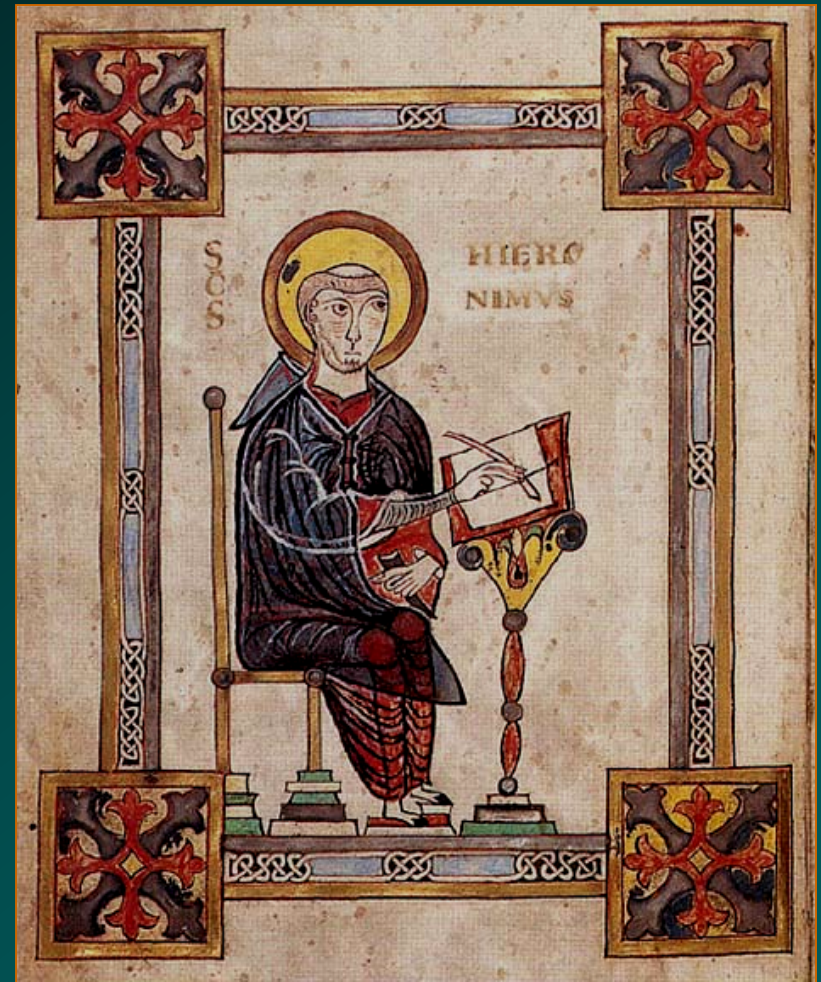 SCS
HIERO
NIMVS